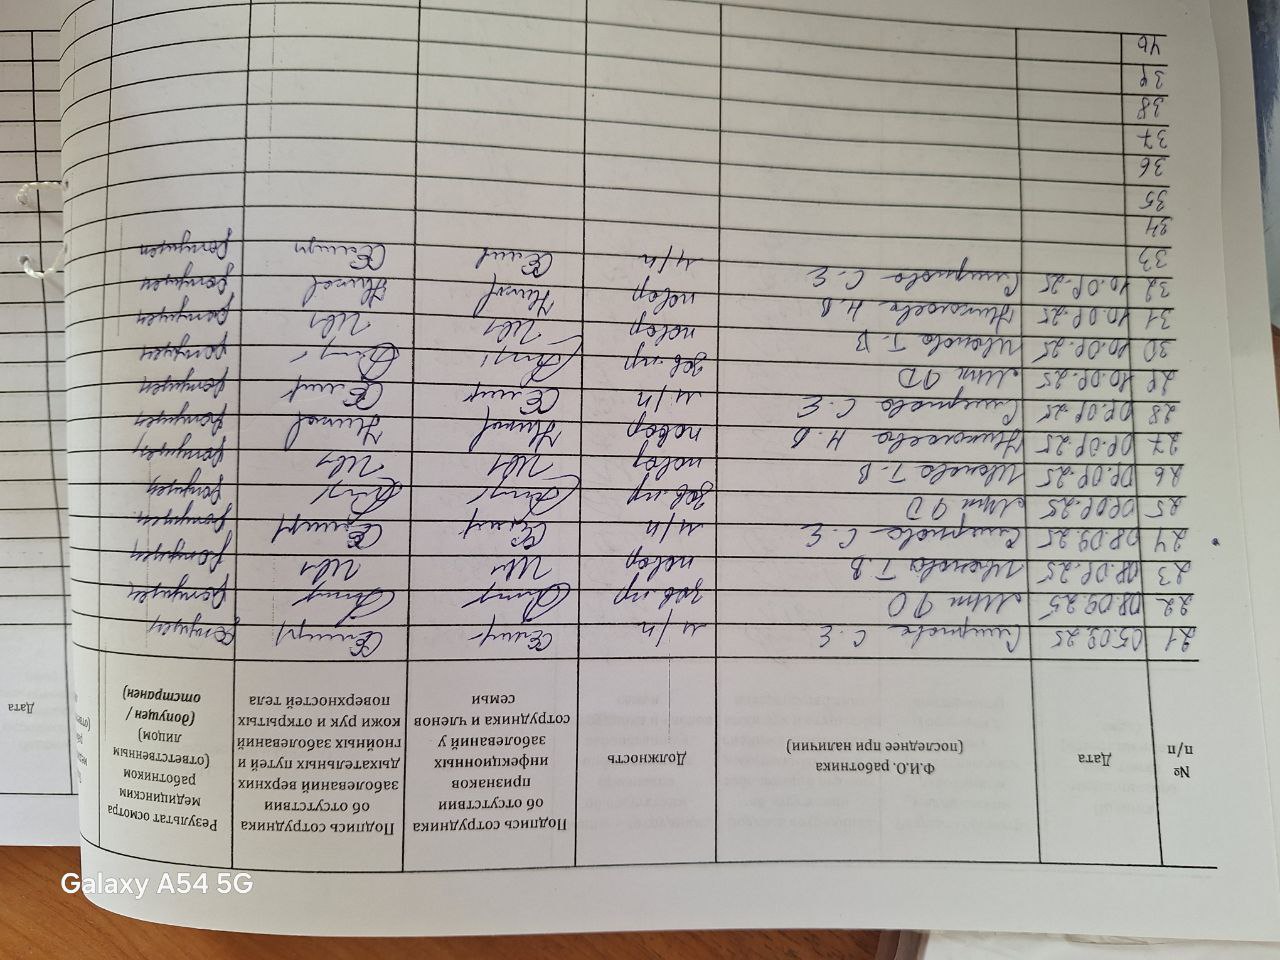 № п/п
Дата
Ф.И.О. работника (последнее при наличии)
Должность
Подпись сотрудника об отсутствии признаков инфекционных заболеваний у сотрудника и членов семьи
Подпись сотрудника об отсутствии заболеваний верхних дыхательных путей и гнойных заболеваний кожи рук и открытых поверхностей тела
Результат осмотра медицинским работником (ответственным лицом) (допущен / отстранен)
21 05.09.25 Смирнова С.Е м/п допущен
22 08.09.25 зав.пр допущен
23 08.09.25 Иванова Т.В повар Ив Ив допущен
24 08.09.25 Смирнова С.Е м/п допущен
25 09.09.25 зав.пр допущен
26 09.09.25 Иванова Т.В повар Ив Ив допущен
27 09.09.25 Николаева Н.В повар Никол Никол допущен
28 09.09.25 Смирнова С.Е м/п допущен
29 10.09.25 зав.пр допущен
30 10.09.25 Иванова Т.В повар Ив Ив допущен
31 10.09.25 Николаева Н.В повар Никол Никол допущен
32 10.09.25 Смирнова С.Е м/п допущен
33
34
35
36
37
38
39
40
Дата
Galaxy A54 5G